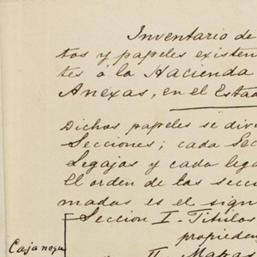 Inventario de
tos y papeles existen
tes á la Hacienda
Anexas, en el Estad
Dichos papeles se divi
Secciones; cada Sec
Legajos y cada lega
El orden de las secci
madas es el sigui
Seccion I-Titulos
propieda
Caja no
II Mapas